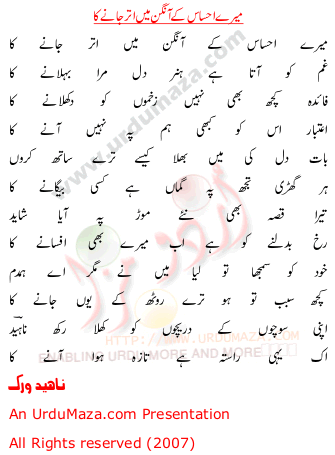 میرے احساس کے آنگن میں اتر جانے کا
میرے احساس کے آنگن میں اتر جانے کا
غم کو آتا ہے ہنر دل مرا بہلانے کا
فائدہ کچھ بھی نہیں زخموں کو دکھلانے کا
اعتبار اس کو کبھی ہم پہ نہیں آنے کا
بات دل کی میں بھلا کیسے ترے ساتھ کروں
ہر گھڑی تجھ پہ گماں ہے کسی بیگانے کا
تیرا قصہ بھی نئے موڑ پہ آیا شاید
رخ بدلنے کو ہے اب میرے بھی افسانے کا
خود کو سمجھا تو لیا میں نے مگر اے ہمدم
کچھ سبب تو ہو ترے روٹھ کے یوں جانے کا
اپنی سوچوں کے دریچوں کو کھلا رکھ ناہید
اک یہی راستہ ہے تازہ ہوا آنے کا
ناهید ورک
An UrduMaza.com Presentation
All Rights reserved (2007)
www.urdumaza.com
اردو مزا
HTTP://WWW.URDUMAZA.COM
ENABLING URDU MORE AND MORE